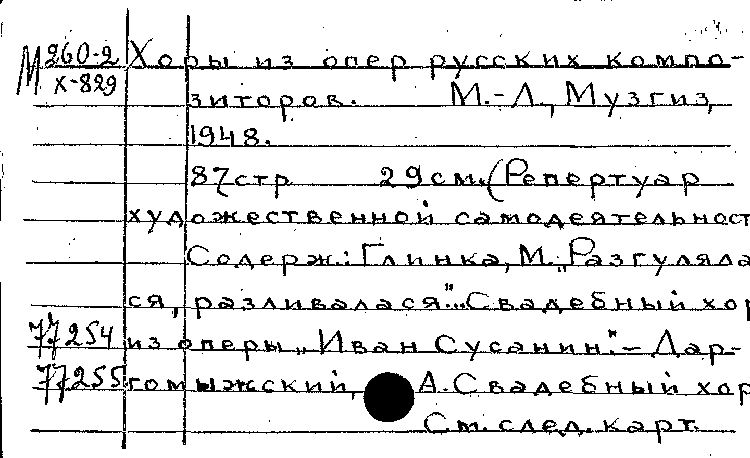 М 260-2 Хоры из опер русских компо-
Х-829
зиторов. М.-Л., Музгиз,
1948.
87стр 29см. (Репертуар
художественной самодеятельност
Содерж.: Глинка, М. „Разгуляла
ся, разливалася". Свадебный хор
77254 из оперы „Иван Сусанин".- Дар-
77255 гомыжский, А. Свадебный хор
См. след. карт.